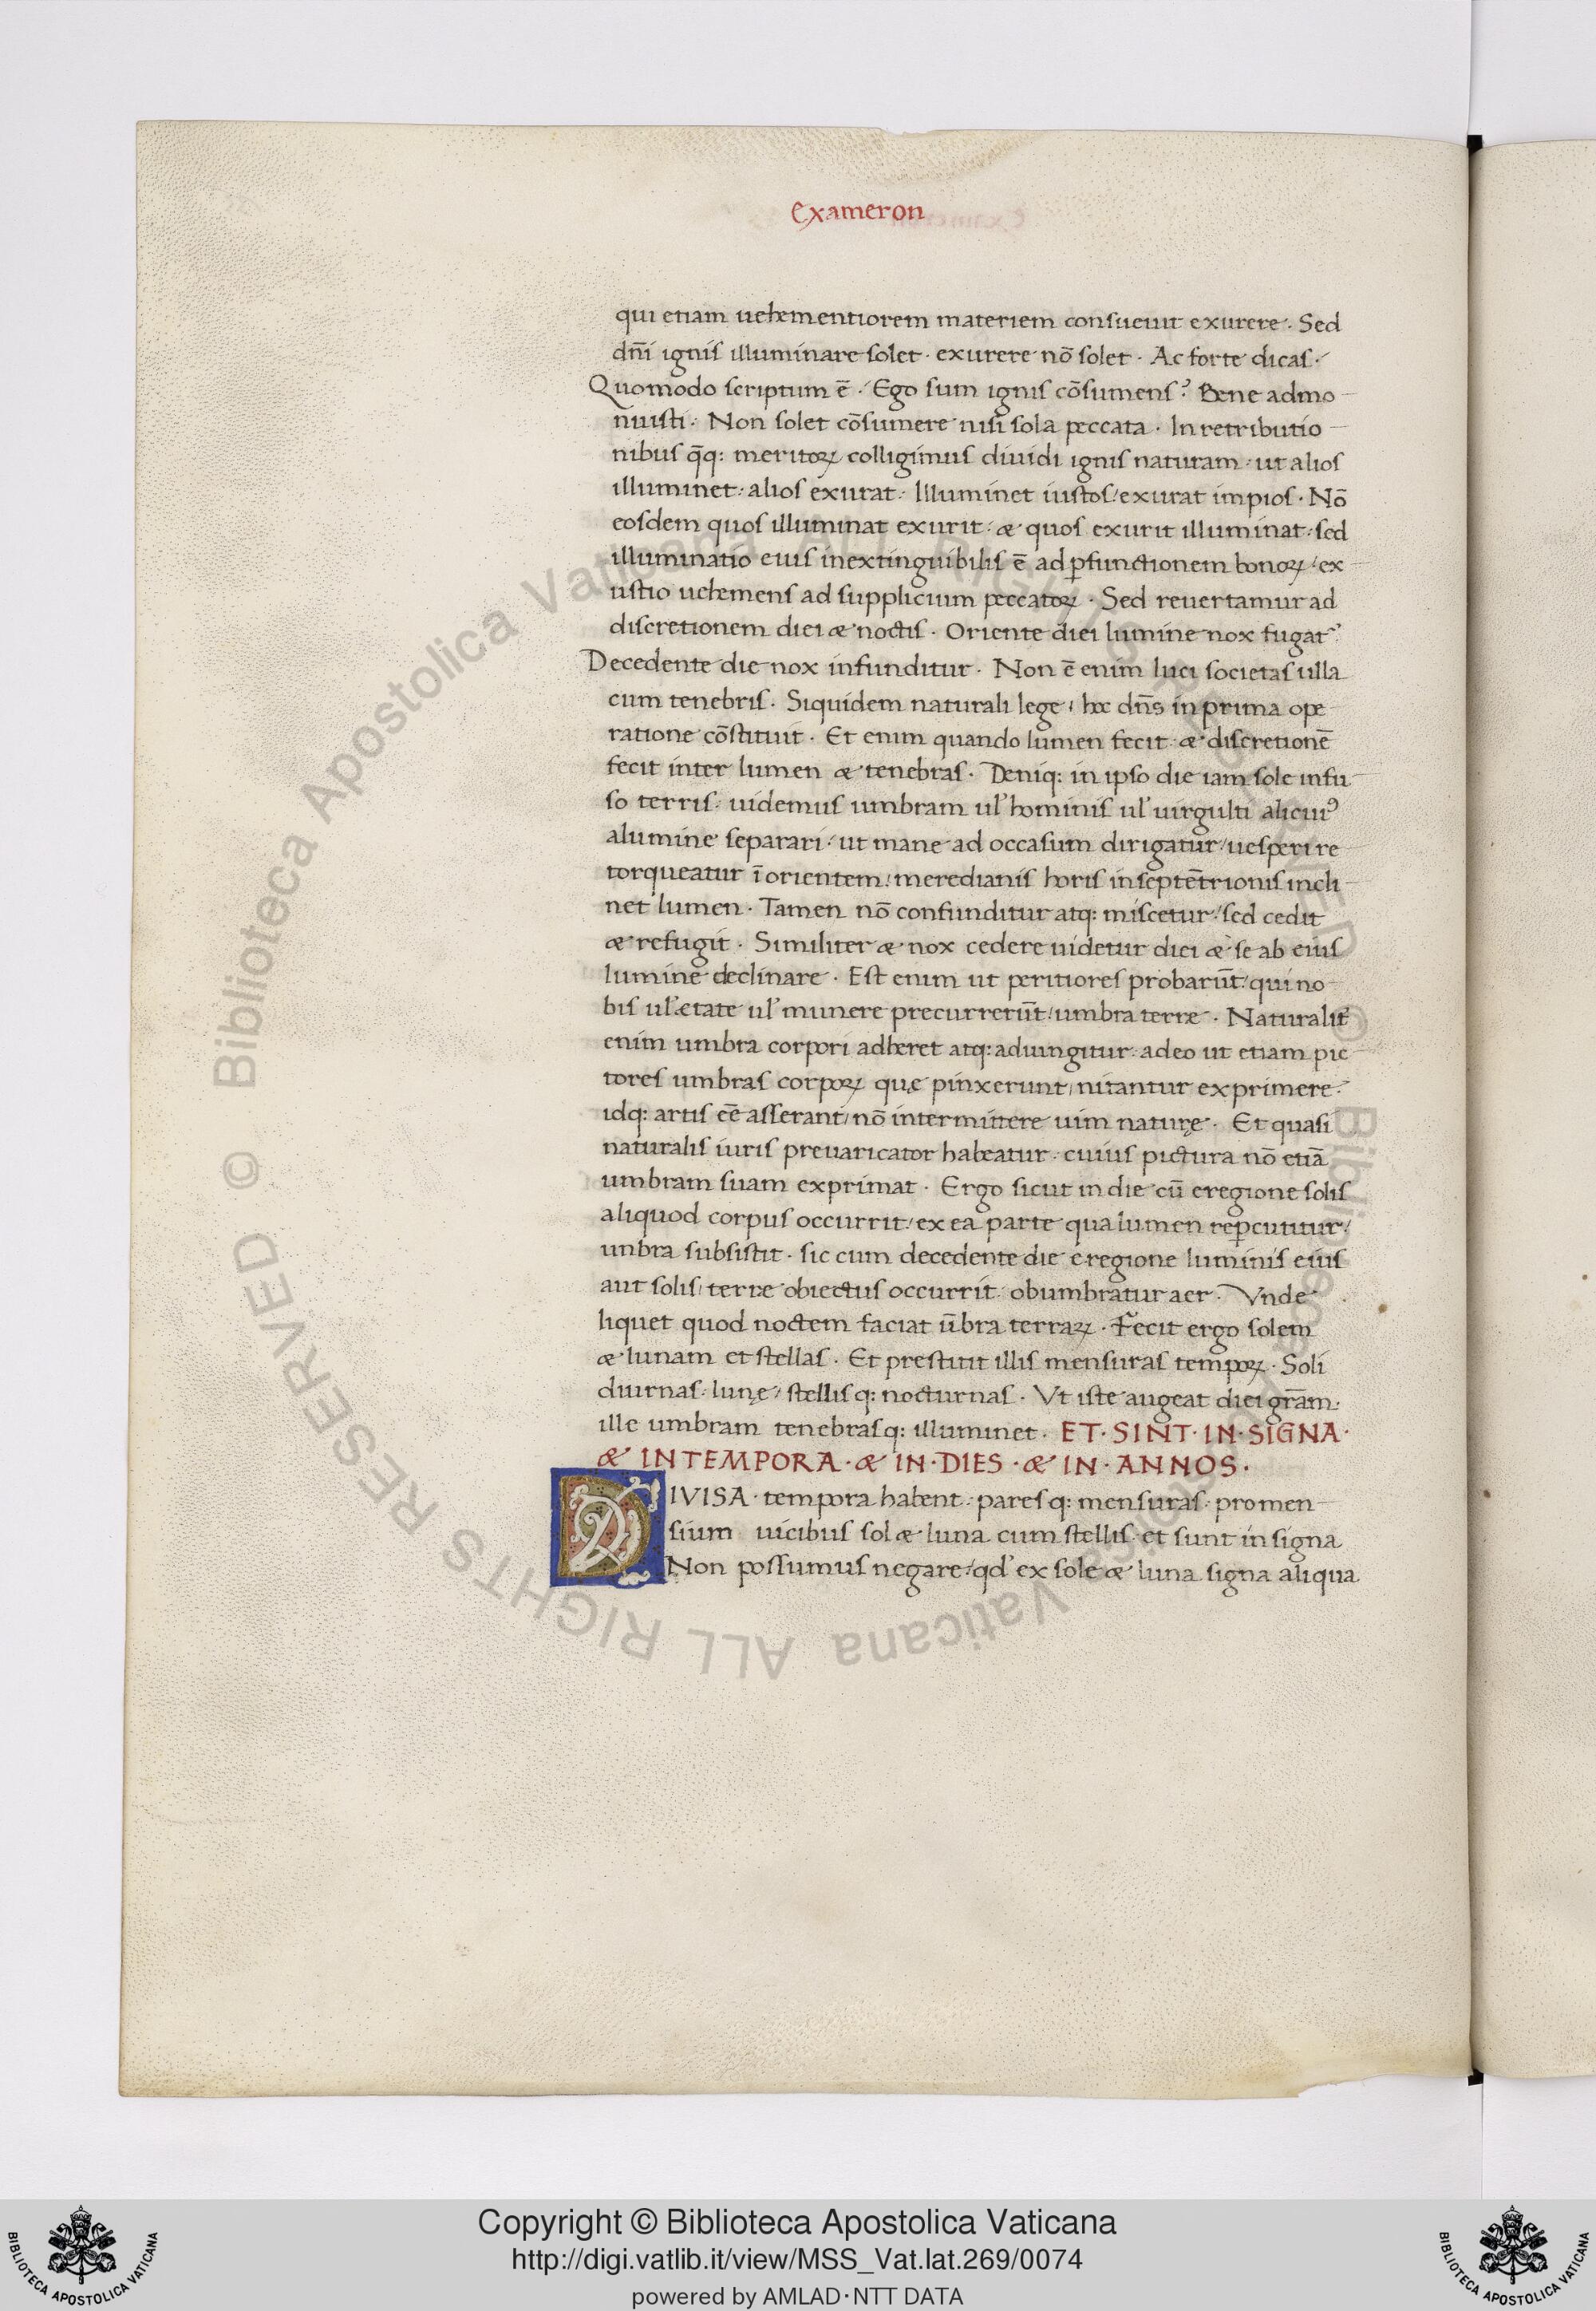 Exameron
qui etiam uehementiorem materiem consueuit exurere · Sed
dñi ignis illuminare solet · exurere nõ solet · Ac forte dicas ·
Quomodo scriptum ē · Ego sum ignis cõsumens? Bene admo
nuisti · Non solet cõsumere nisi sola peccata · In retributio
nibus q̄q: meritoꝝ colligimus diuidi ignis naturam · ut alios
illuminet · alios exurat · Illuminet iustos / exurat impios · Nõ
eosdem quos illuminat exurit · & quos exurit illuminat · sed
illuminatio eius inextinguibilis ē ad ꝑfunctionem bonoꝝ / ex
ustio uehemens ad supplicium peccatoꝝ · Sed reuertamur ad
discretionem diei & noctis · Oriente diei lumine nox fugat᷑
Decedente die nox infunditur · Non ē enim luci societas ulla
cum tenebris · Siquidem naturali lege / hoc dñs in prima ope
ratione cõstituit · Et enim quando lumen fecit · & discretionē
fecit inter lumen & tenebras · Deniq: in ipso die iam sole infu
so terris · uidemus umbram ul' hominis ul' uirgulti alicuiꝰ
alumine separari · ut mane ad occasum dirigatur / uesperi re
torqueatur ī orientem / meredianis horis in septētrionis incli
net lumen · Tamen nõ confunditur atq: miscetur / sed cedit
& refugit · Similiter & nox cedere uidetur diei & se ab eius
lumine declinare · Est enim ut peritiores probarūt / qui no
bis ul' ętate ul' munere precurrerūt / umbra terræ · Naturalit᷑
enim umbra corpori adheret atq: adiungitur · adeo ut etiam pic
tores umbras corpoꝝ quę pinxerunt / nitantur exprimere ·
idq: artis eē asserant / nõ intermittere uim naturę · Et quasi
naturalis iuris preuaricator habeatur · cuius pictura nõ etiā
umbram suam exprimat · Ergo sicut in die cū eregione solis
aliquod corpus occurrit / ex ea parte qua lumen reꝑcutitur /
unbra subsistit · sic cum decedente die e regione luminis eius
aut solis / terræ obiectus occurrit · obumbratur aer · Vnde
liquet quod noctem faciat ūbra terraꝝ · Fecit ergo solem
& lunam et stellas · Et prestitit illis mensuras tempoꝝ · Soli
diurnas · lunę / stellisq: nocturnas · Vt iste augeat diei grām ·
ille umbram tenebrasq: illuminet · ET · SINT · IN · SIGNA ·
& IN TEMPORA · & IN · DIES · & IN · ANNOS ·
DIVISA · tempora habent · paresq: mensuras · pro men
sium uicibus sol & luna cum stellis · et sunt in signa
Non possumus negare / qd' ex sole & luna signa aliqua
© Biblioteca Apostolica Vaticana ALL RIGHTS RESERVED
© Biblioteca Apostolica Vaticana ALL RIGHTS RESERVED
Copyright © Biblioteca Apostolica Vaticana
http://digi.vatlib.it/view/MSS_Vat.lat.269/0074
powered by AMLAD·NTT DATA
BIBLIOTECA APOSTOLICA VATICANA
BIBLIOTECA APOSTOLICA VATICANA